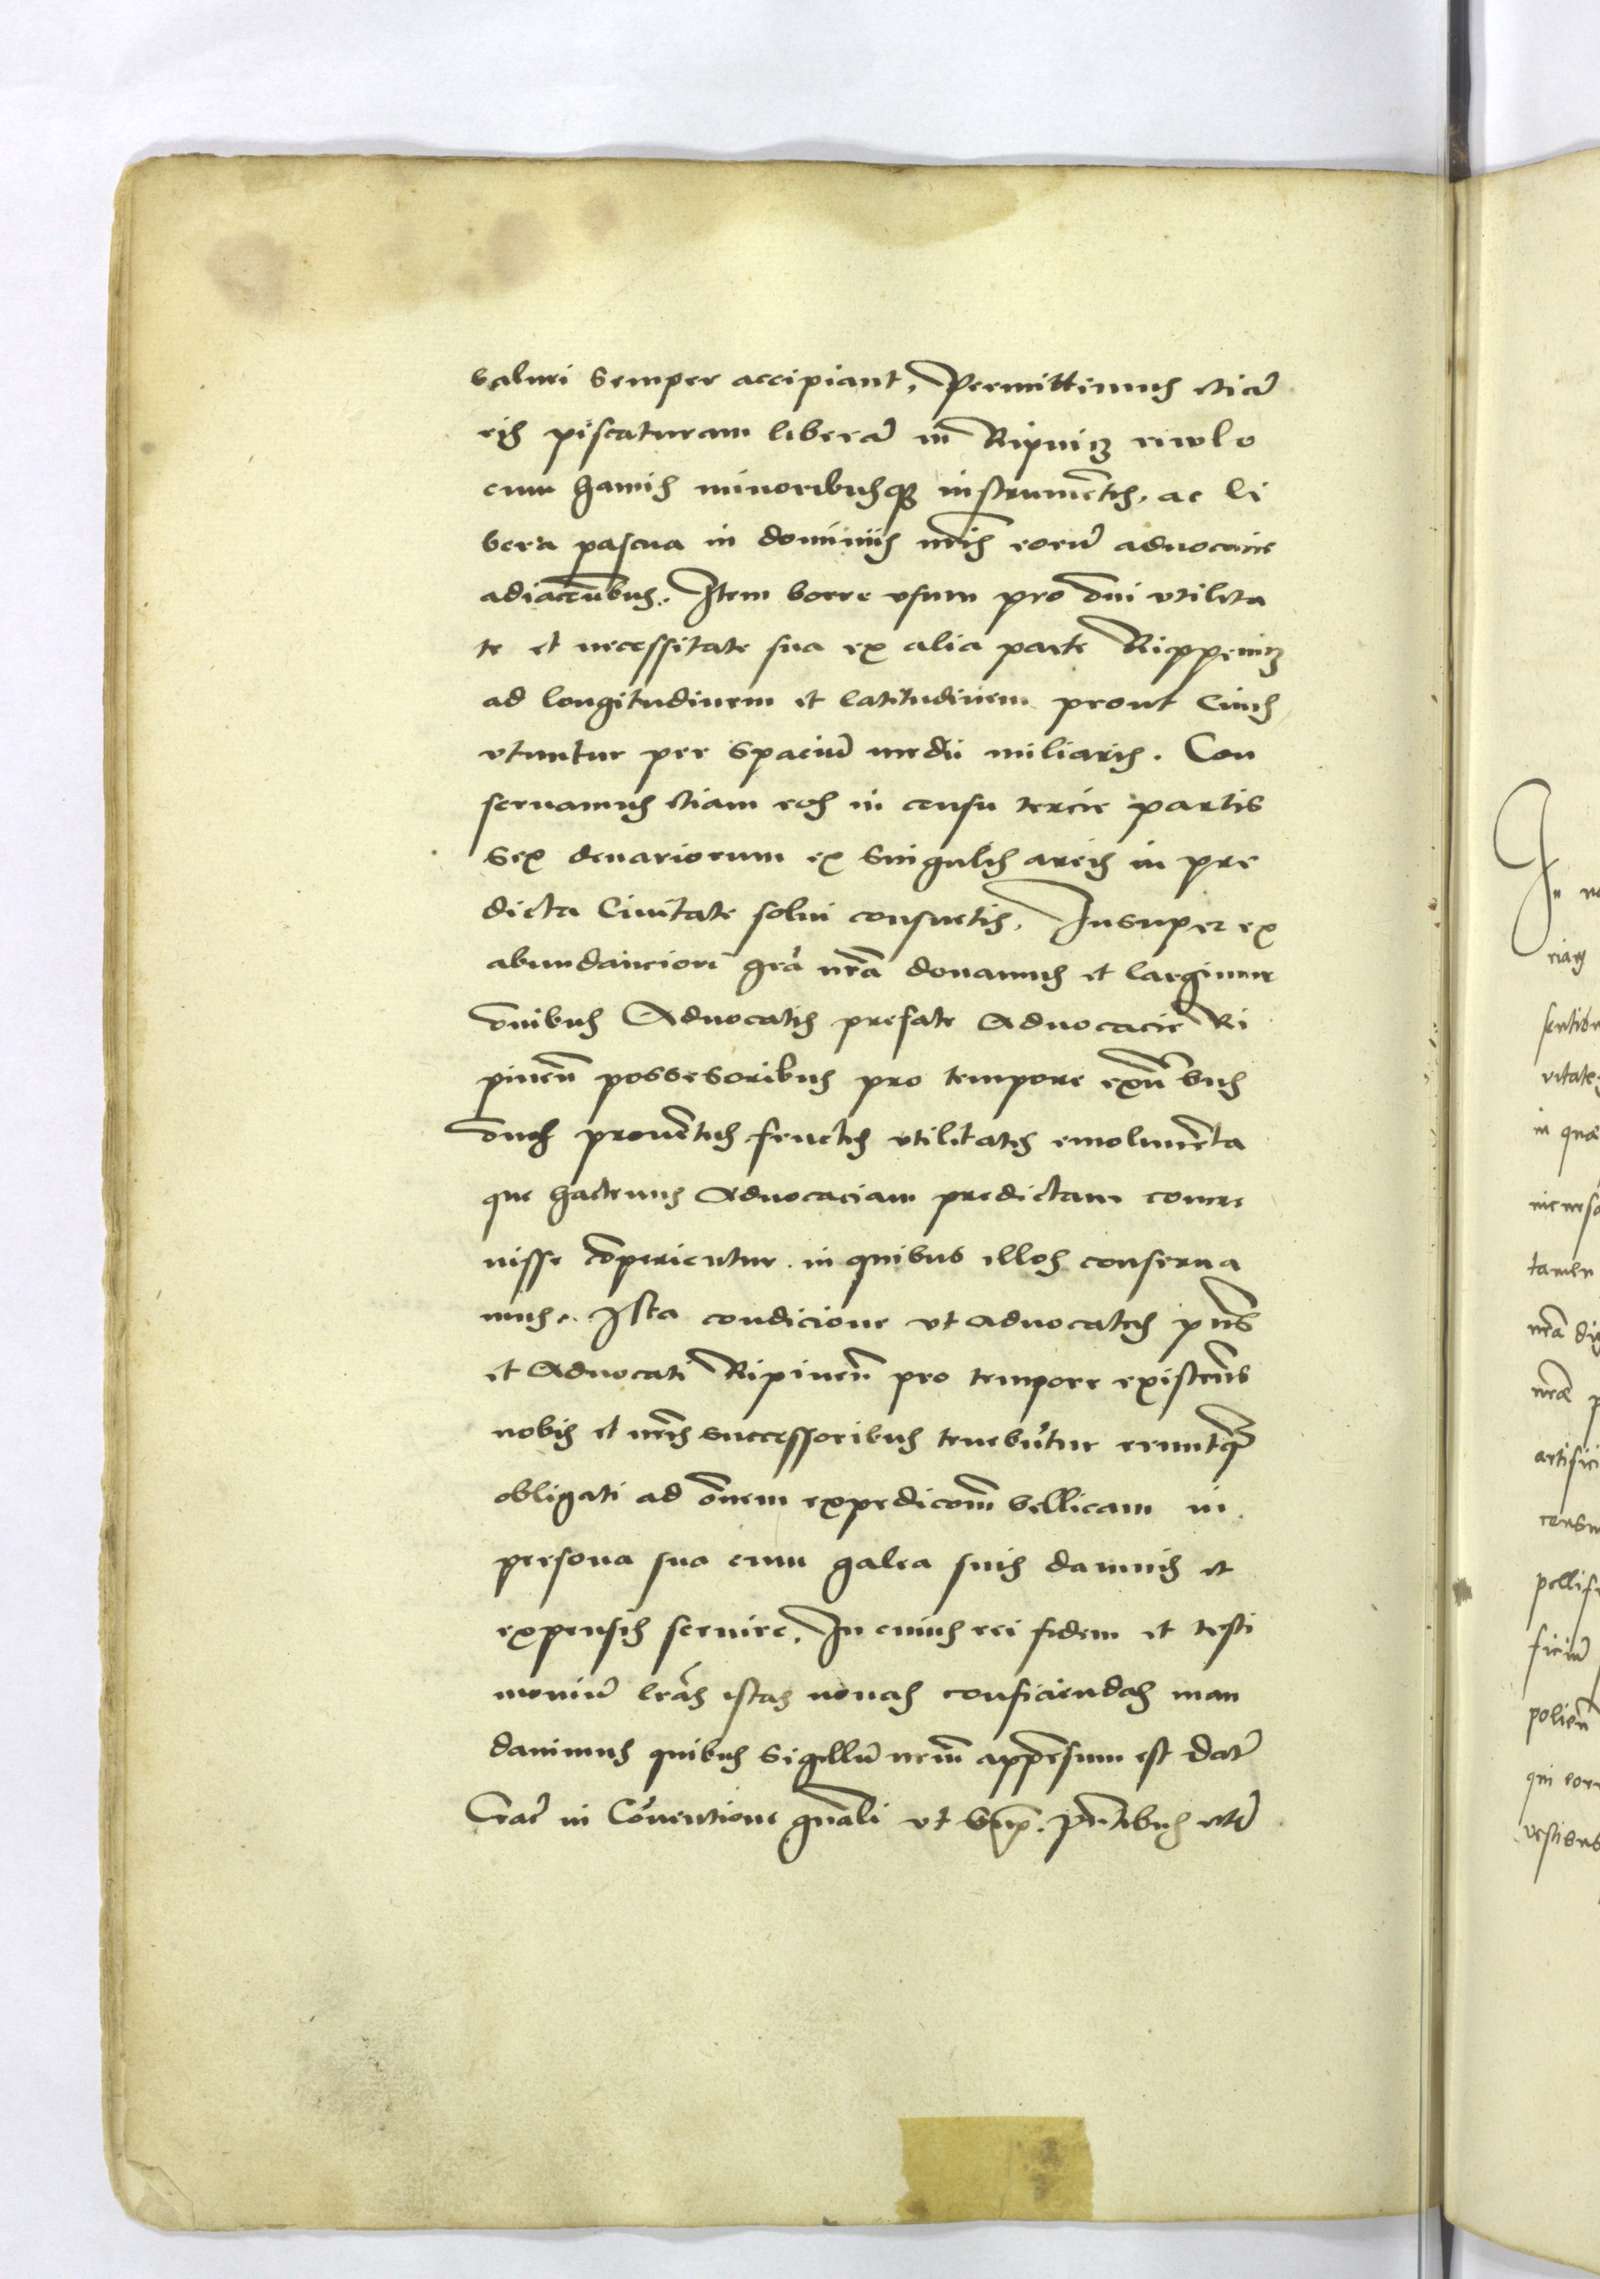 balnei semper accipiant, Permittimus eciã
eis piscaturam liberã in Ripnicz riwlo
cum hamis minoribusq; instrumẽtis, ac li
bera pascua in dominiis nr̃is eorũ aduocacie
adiacẽtibus. Item borre vsum pro om̃i vtilita
te et necessitate sua ex alia parte Rippenicz
ad longitudinem et latitudinem prout Ciues
vtuntur per spaciũ medii miliaris. Con
seruamus etiam eos in censu tercie partis
sex denariorum ex singulis areis in pre
dicta Ciuitate solui consuetis. Insuper ex
abundanciori gr̃a nr̃a donamus et largimur
om̃ibus Aduocatis prefate Aduocacie Ri
pinen̄ possesoribus pro tempore exñtibus
om̃es prouẽtus fructus vtilitates emolumẽta
que hactenus Aduocaciam predictam conue
nisse cõperientur. in quibus illos conserua
mus. Ista condicione vt aduocatus pñs
et Aduocati Ripinen̄ pro tempore existẽtes
nobis et nr̃is successoribus tenebũtur eruntq;
obligati ad om̃em expedicõm bellicam in
persona sua cum galea suis damnis et
expensis seruire. In cuius rei fidem et testi
moniũ lr̃as istas nouas conficiendas man
dauimus quibus sigillũ nr̃m appẽsum est Dat̃
Crac̃ in Cõuentione gñali vt supr̃. pñtibus etc̃
In
riaȝ
sentib
vitate
in qua
tamen
nr̃a
nr̃a
artifici
censu
ficiũ
polien̄
qui eor
vestibus